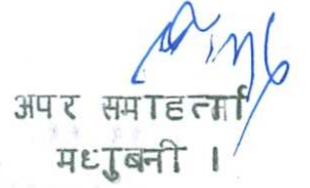 अपर समाहर्त्ता
मधुबनी ।